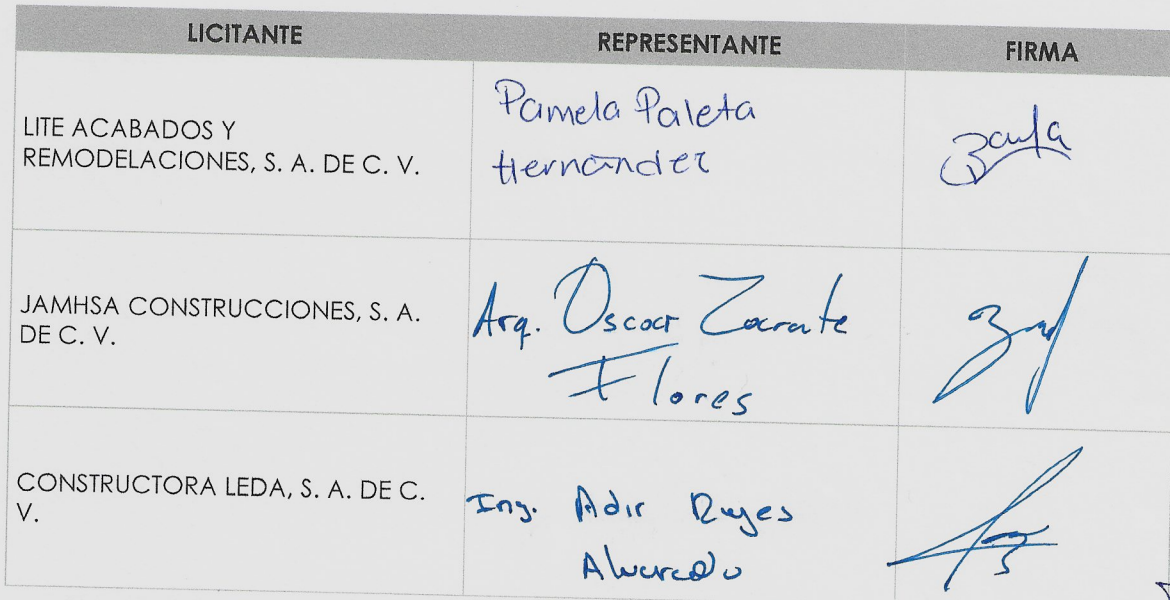 LICITANTE REPRESENTANTE FIRMA
LITE ACABADOS Y
REMODELACIONES, S. A. DE C. V.
Pamela Paleta
Hernández
JAMHSA CONSTRUCCIONES, S. A.
DE C. V.
Arq. Oscar Zarate
Flores
CONSTRUCTORA LEDA, S. A. DE C.
V.
Ing. Adir Reyes
Alvarado